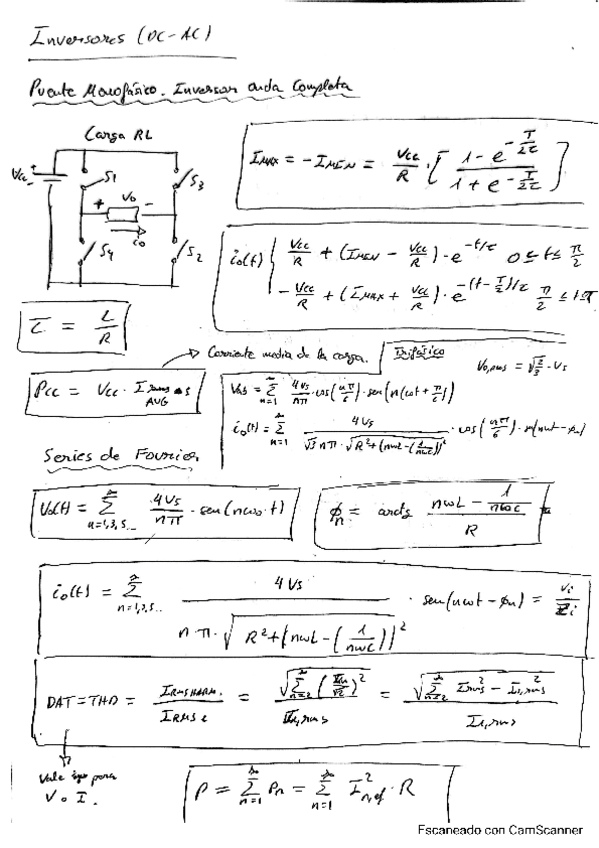 Inversores (DC-AC)
Puente Monofásico. Inversor onda Completa
Carga RL
Vcc + -
S1
S3
+ Vo -
io
S4
S2
I_MAX = -I_MIN = Vcc/R · [ (1 - e^(-T/2τ)) / (1 + e^(-T/2τ)) ]
io(t) { Vcc/R + (I_MIN - Vcc/R) · e^(-t/τ)   0 ≤ t ≤ T/2
-Vcc/R + (I_MAX + Vcc/R) · e^(-(t - T/2)/τ)   T/2 ≤ t ≤ T
τ = L/R
→ Corriente media de la carga.
Pcc = Vcc · I
AVG
Trifásico
Vo,rms = √(2/3) · Vs
Vab = Σ n=1 ∞ 4Vs/nπ · cos(nπ/6) · sen(n(ωt + π/6))
io(t) = Σ n=1 ∞ 4Vs / (√3 nπ · √(R² + (nωL - (1/nωC))²)) · cos(nπ/6) · sen(nωt - øn)
Series de Fourier
Vo(t) = Σ n=1,3,5... ∞ 4Vs/nπ · sen(nωo·t)
øn = arctg (nωL - 1/nωC) / R
io(t) = Σ n=1,3,5.. ∞ 4Vs / (n·π·√(R² + (nωL - (1/nωC))²)) · sen(nωt - øn) = Vi/Zi
DAT = THD = I RMS HARM. / I RMS 1 = √(Σ n=2 ∞ (In/√2)²) / I1,rms = √(Σ n=2 ∞ Irms² - I1,rms²) / I1,rms
Vale igual para
V o I.
P = Σ n=1 ∞ Pn = Σ n=1 ∞ I²n,ef · R
Escaneado con CamScanner